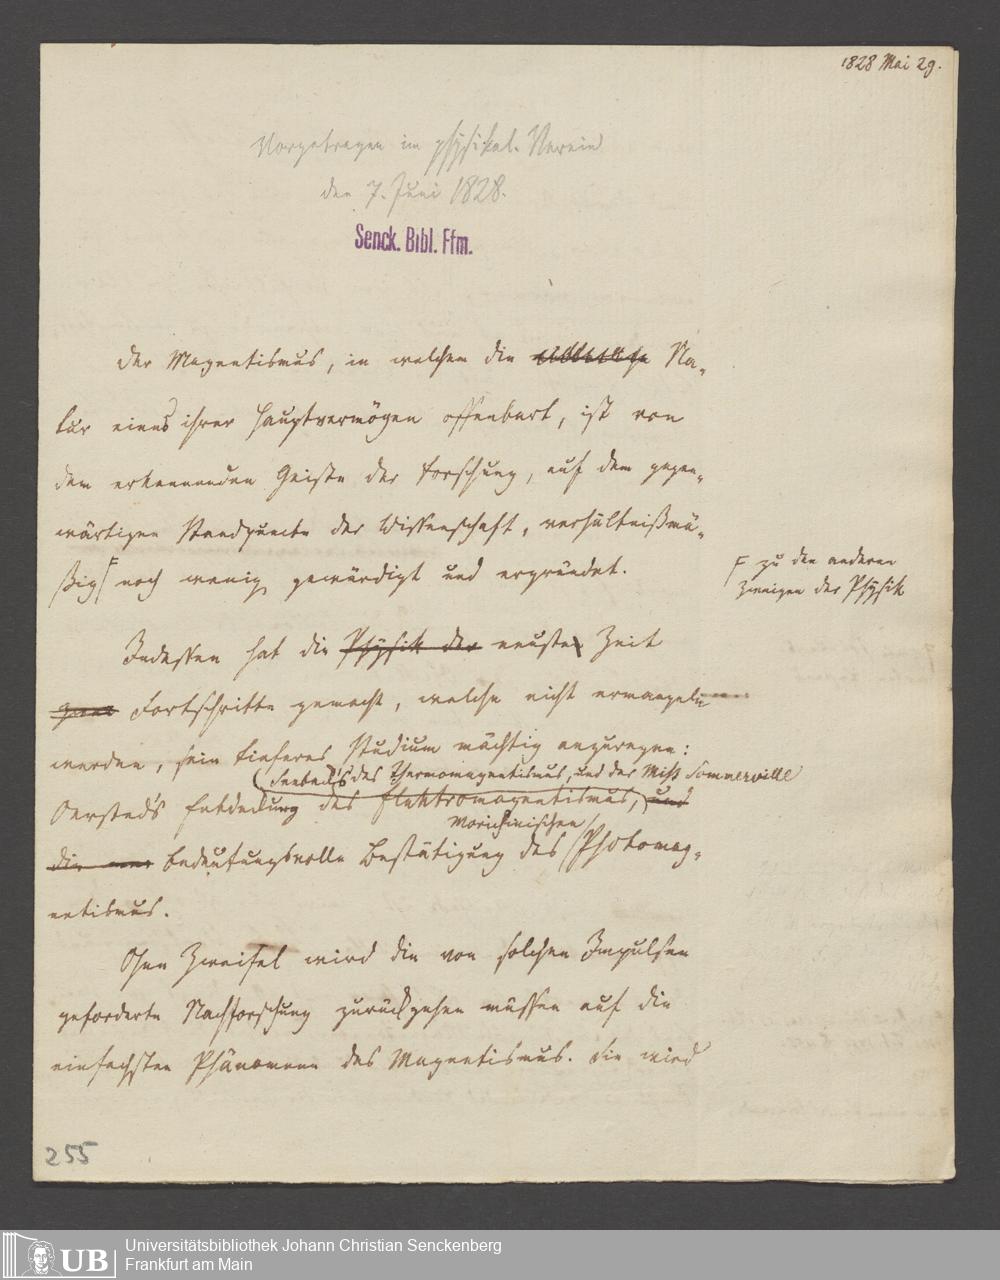 1828 Mai 29.
Vorgetragen im physikal. Verein
den 7. Juni 1828.
Senck. Bibl. Ffm.
Der Magnetismus, in welchem die Na-
tur eines ihrer Hauptvermögen offenbart, ist von
dem erkennenden Geiste der Forschung, auf dem gegen-
wärtigen Standpuncte der Wissenschaft, verhältnißmä-
ßig noch wenig gewürdigt und ergründet.
zu den anderen
Zweigen der Physik
Indessen hat die Physik der neuste Zeit
Fortschritte gemacht, welche nicht ermangeln
werden, sein tieferes Studium mächtig anzuregen:
Seebecks des Thermomagnetismus, und der Miss Sommerville
Oersted's Entdeckung des Elektromagnetismus, und
Morichinischen
die bedeutungsvolle Bestätigung des Photomag-
netismus.
Ohne Zweifel wird die von solchen Impulsen
geforderte Nachforschung zurückgehen müssen auf die
einfachsten Phänomene des Magnetismus. Sie wird
255
UB
Universitätsbibliothek Johann Christian Senckenberg
Frankfurt am Main